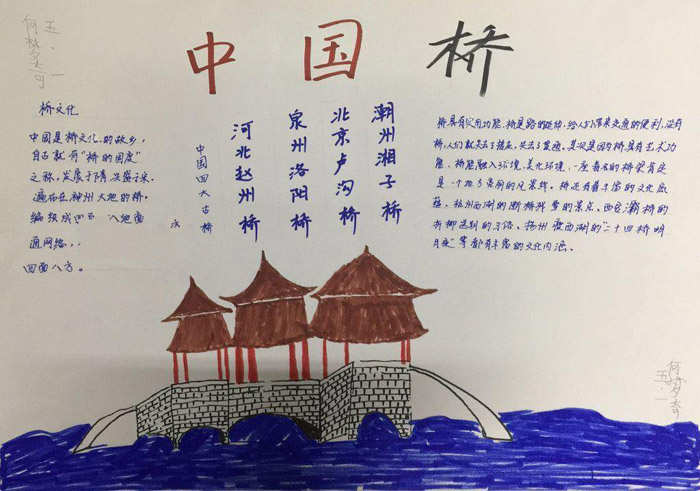 中国桥
五.一
桥文化
中国是桥文化的故乡,
自古就有“桥的国度”
之称,发展于隋,兴盛于宋.
遍布在神州大地的桥,
编织成四
八地面
通网络,.
四面八方。
中国四大古桥
河北赵州桥
泉州洛阳桥
北京卢沟桥
潮州湘子桥
桥具有实用功能,桥是路的延伸,给人们带来交通的便利,没有
桥,人们就失去了
失去了
其次是因为桥具有艺术功
能,桥能融入环境,美化环境,一座著名的桥梁肯定
是一个地方亮丽的风景线。桥还有着丰富的文化底
蕴,杭州西湖的断桥残雪的景点、西安灞桥的
折柳送别的习俗、扬州瘦西湖的“二十四桥明
月夜”等都有丰富的文化内涵。
五.一